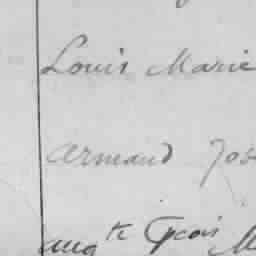 Louis Marie
Armand Jos
Aug te Fçois M